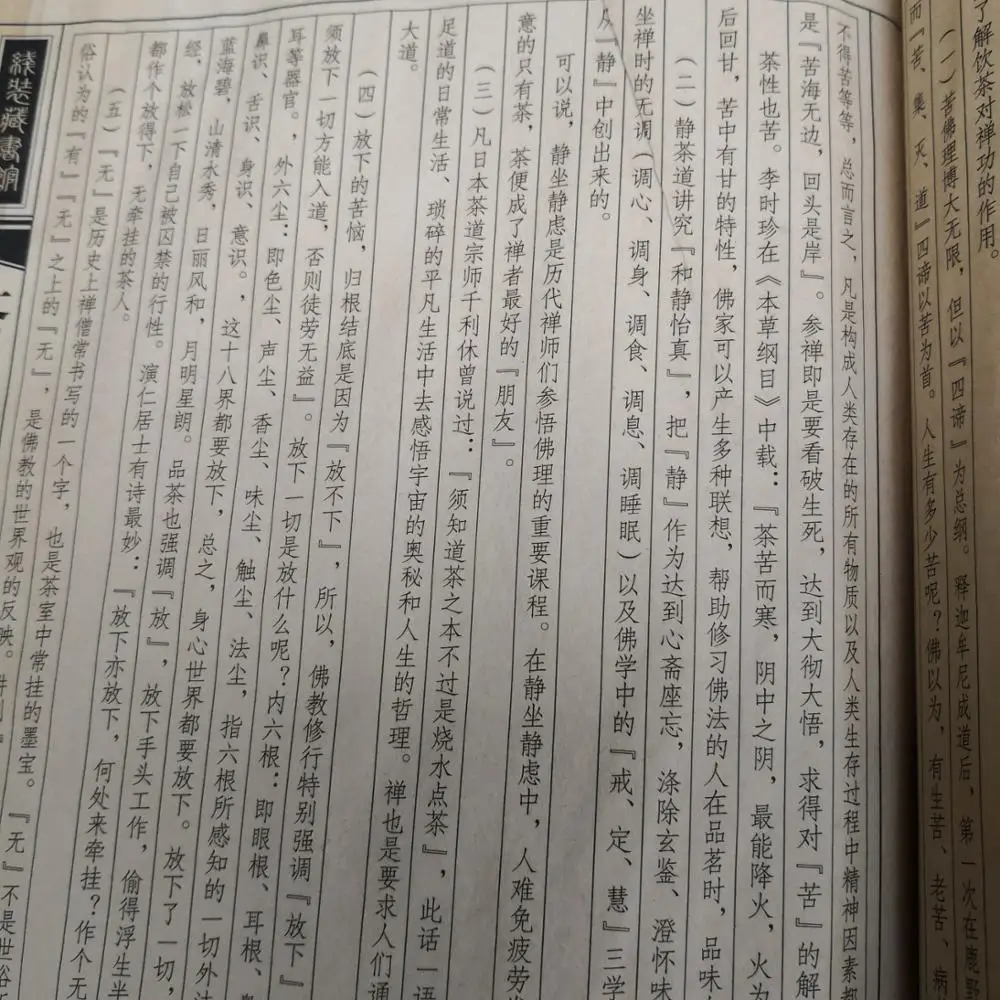 了解饮茶对禅功的作用。
（一）苦佛理博大无限，但以『四谛』为总纲。释迦牟尼成道后，第一次在鹿野
而『苦、集、灭、道』四谛以苦为首。人生有多少苦呢？佛以为，有生苦、老苦、病
不得苦等等，总而言之，凡是构成人类存在的所有物质以及人类生存过程中精神因素都
是『苦海无边，回头是岸』。参禅即是要看破生死，达到大彻大悟，求得对『苦』的解
茶性也苦。李时珍在《本草纲目》中载：『茶苦而寒，阴中之阴，最能降火，火为
后回甘，苦中有甘的特性，佛家可以产生多种联想，帮助修习佛法的人在品茗时，品味
（二）静茶道讲究『和静怡真』，把『静』作为达到心斋座忘，涤除玄鉴、澄怀味
坐禅时的无调（调心、调身、调食、调息、调睡眠）以及佛学中的『戒、定、慧』三学
从『静』中创出来的。
可以说，静坐静虑是历代禅师们参悟佛理的重要课程。在静坐静虑中，人难免疲劳
意的只有茶，茶便成了禅者最好的『朋友』。
（三）凡日本茶道宗师千利休曾说过：『须知道茶之本不过是烧水点茶』，此话一语
足道的日常生活、琐碎的平凡生活中去感悟宇宙的奥秘和人生的哲理。禅也是要求人们通
大道。
（四）放下的苦恼，归根结底是因为『放不下』，所以，佛教修行特别强调『放下』
须放下一切方能入道，否则徒劳无益』。放下一切是放什么呢？内六根：即眼根、耳根、
耳等器官。，外六尘：即色尘、声尘、香尘、味尘、触尘、法尘，指六根所感知的一切外
鼻识、舌识、身识、意识。，这十八界都要放下，总之，身心世界都要放下。放下了一切，
蓝海碧，山清水秀，日丽风和，月明星朗。品茶也强调『放』，放下手头工作，偷得浮生半
经，放松一下自己被囚禁的行性。演仁居士有诗最妙：『放下亦放下，何处来牵挂？作个无
都作个放得下，无牵挂的茶人。
（五）『无』是历史上禅僧常书写的一个字，也是茶室中常挂的墨宝。『无』不是世俗
俗认为的『有』『无』之上的『无』，是佛教的世界观的反映。
线装藏书馆